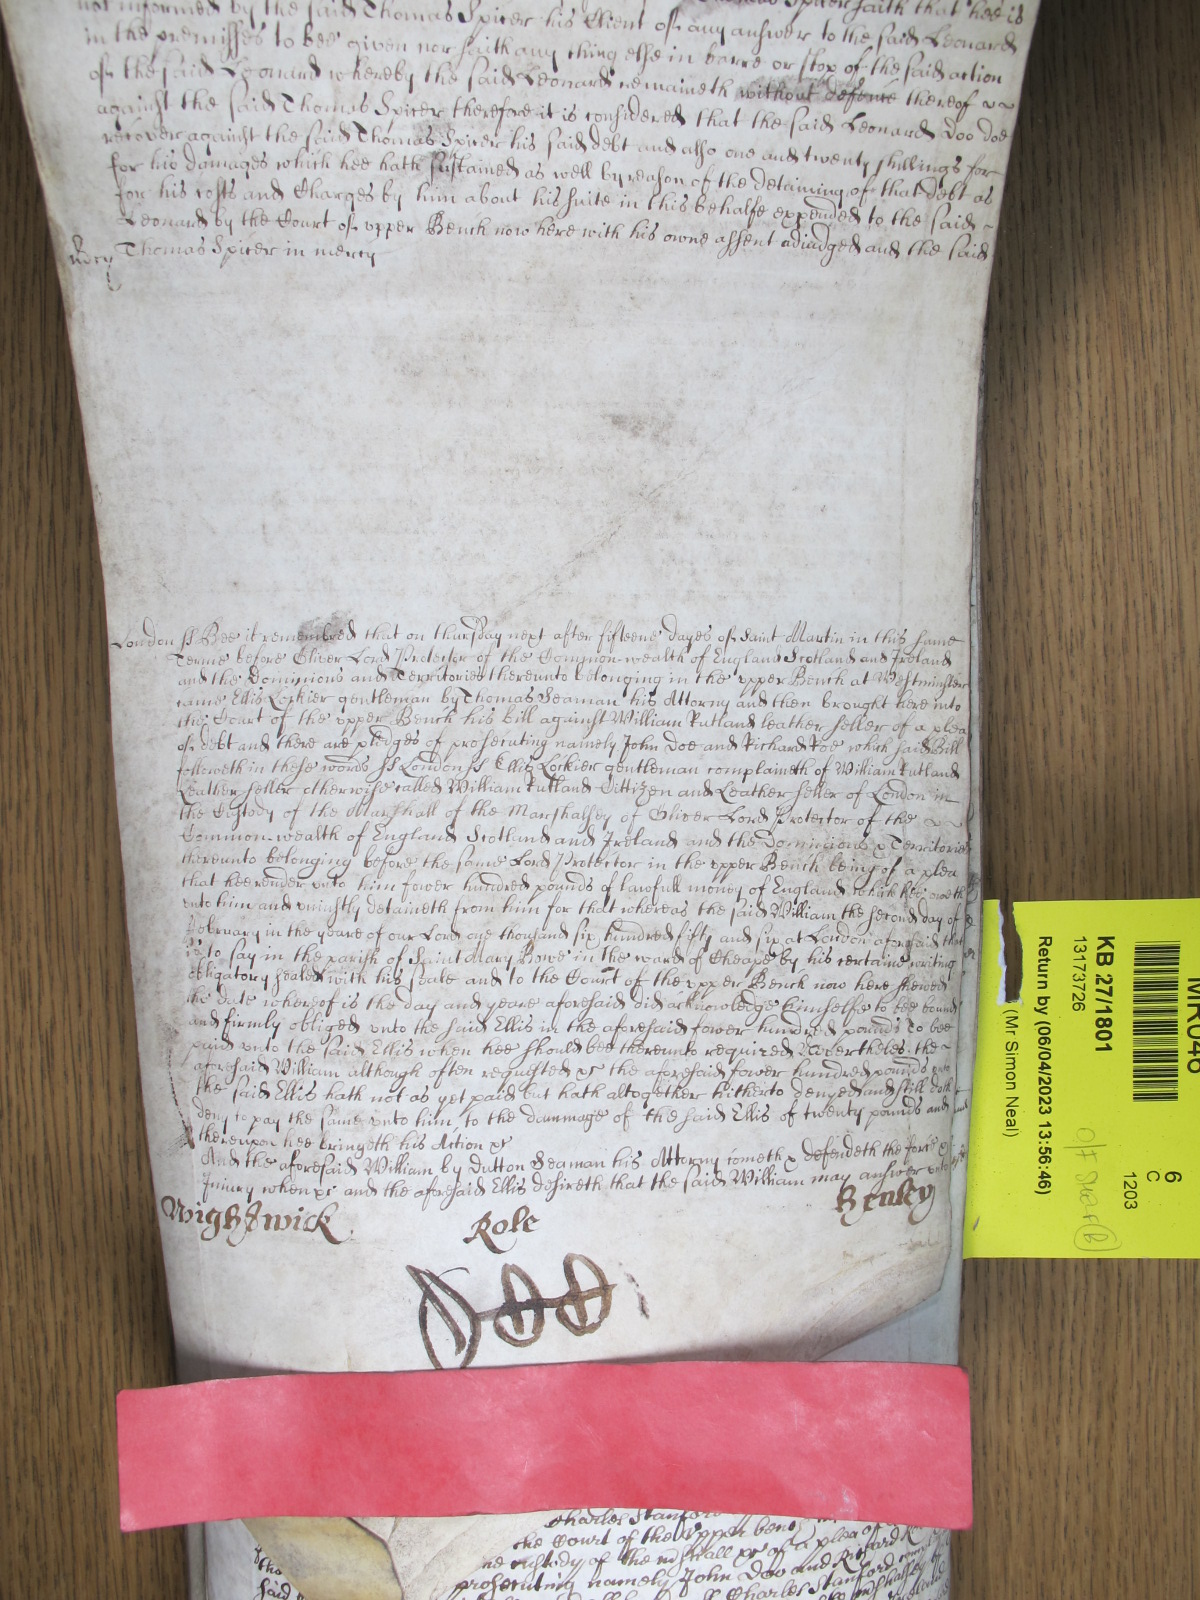 not informed by the said Thomas Spicer his Client of any answer to the said Leonard
in the premisses to bee given nor saith any thing else in barre or stop of the said action
of the said Leonard whereby the said Leonard remaineth without defence thereof
against the said Thomas Spicer therefore it is considered that the said Leonard Doo doe
recover against the said Thomas Spicer his said debt and also one and twenty shillings for
for his damages which hee hath sustained as well by reason of the deteining of that debt as
for his costs and Charges by him about his suite in this behalfe expended to the said
Leonard by the Court of upper Bench now here with his owne assent adiudged and the said
Thomas Spicer in mercy
London ss Bee it remembred that on thursday next after fifteene dayes of Saint Martin in this same
Terme before Oliver Lord Protector of the Common-wealth of England Scotland and Ireland
and the Dominions and Territories thereunto belonging in the upper Bench at Westminster
came Ellis Lockier gentleman by Thomas Seaman his Attorny and then brought here into
the Court of the upper Bench his bill against William Rutland leather seller of a plea
of debt and there are pledges of prosecuting namely John Doe and Richard Roe which said Bill
followeth in these words ss London ss Ellis Lockier gentleman complaineth of William Rutland
Leather seller otherwise called William Rutland Cittizen and Leather seller of London in
the Custody of the Marshall of the Marshalsey of Oliver Lord Protector of the
Common-wealth of England Scotland and Ireland and the Dominions & Territories
thereunto belonging before the same Lord Protector in the upper Bench being of a plea
that hee render unto him fower hundred pounds of lawfull money of England which hee oweth
unto him and uniustly detaineth from him for that whereas the said William the second day of
February in the yeare of our Lord one thousand six hundred fifty and six at London aforesaid that
is to say in the parish of Saint Mary Bowe in the ward of Cheape by his certaine writing
obligatory sealed with his seale and to the Court of the upper Bench now here shewed
the date whereof is the day and yeare aforesaid did acknowledge himselfe to bee bound
and firmly obliged unto the said Ellis in the aforesaid fower hundred pounds to bee
paid unto the said Ellis when hee should bee thereunto required Neverthelesse the
aforesaid William although often requested &c the aforesaid fower hundred pounds unto
the said Ellis hath not as yet paid but hath altogether hitherto denyed and still doth
deny to pay the same unto him, to the dammage of the said Ellis of twenty pounds and
thereupon hee bringeth his Action &c
And the aforesaid William by Dutton Seaman his Attorny cometh & defendeth the force &
Iniury when &c and the aforesaid Ellis desireth that the said William may answer unto
Wightwick Role Henley
Charles Stanford
the Court of the Upper bench
custody of the marshall &c of a plea of
prosecuting namely John Doo and Richard
Charles Stanford
said
MR046
6
C
1203
KB 27/1801
13173726
Return by (06/04/2023 13:56:46)
(Mr Simon Neal)